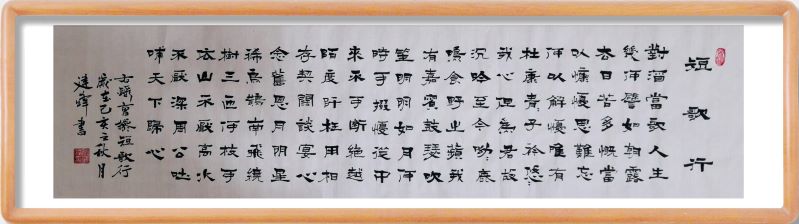 短歌行
對酒當歌人生
幾何譬如朝露
去日苦多慨當
以慷憂思難忘
何以解憂唯有
杜康青子衿悠〻
我心但為君故
沉吟至今呦〻鹿
鳴食野之蘋我
有嘉賓鼓瑟吹
笙明明如月何
時可掇憂從中
來不可斷絕越
陌度阡枉用相
存契闊談宴心
念舊恩月明星
稀烏鵲南飛繞
樹三匝何枝可
依山不厭高水
不厭深周公吐
哺天下歸心
右錄曹操短歌行
歲在己亥之秋月
書